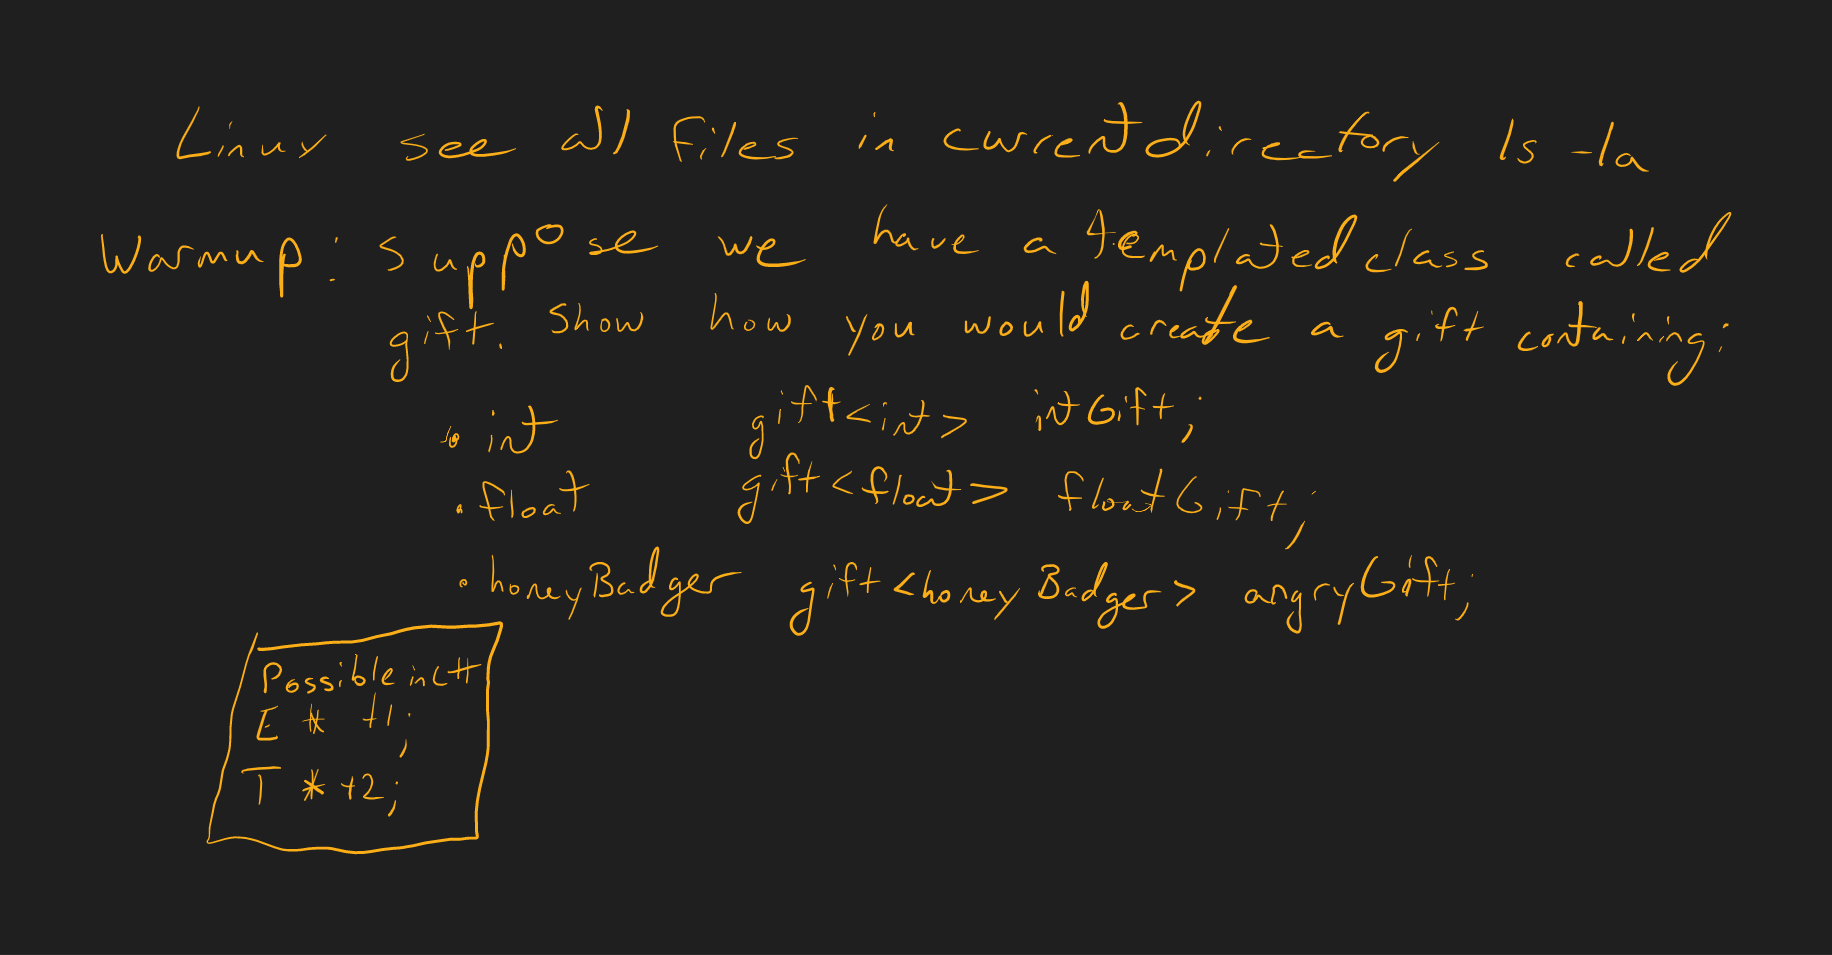 Linux see all files in current directory ls -la
Warmup: suppose we have a templated class called
gift. Show how you would create a gift containing:
• int gift<int> intGift;
• float gift<float> floatGift;
• honeyBadger gift<honeyBadger> angryGift;
Possible in C++
E * t1;
T * t2;